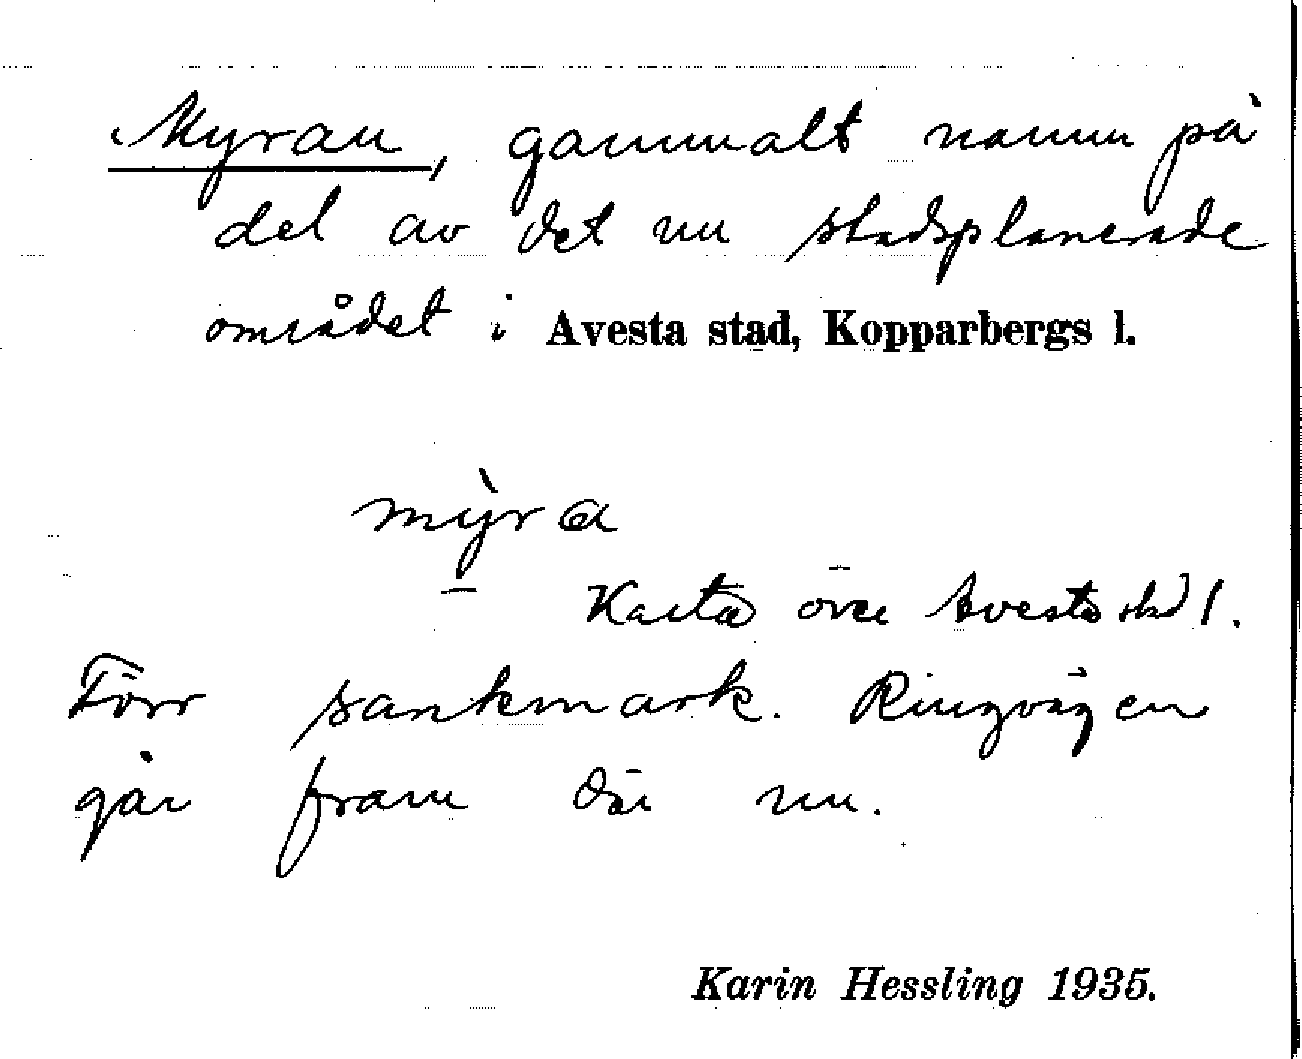 Myran, gammalt namn på
del av det nu stadsplanerade
området i Avesta stad, Kopparbergs l.
mỳra
Karta över Avesta std 1.
Förr sankmark. Ringvägen
går fram där nu.
Karin Hessling 1935.